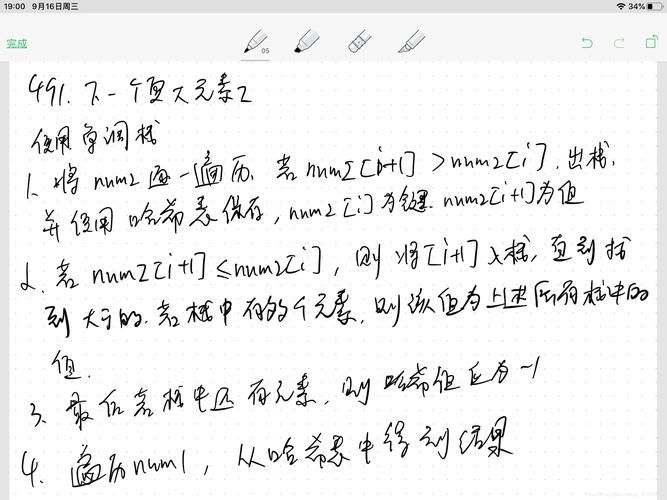 19:00 9月16日周三
34%
完成
05
491. 下一个更大元素2
使用单调栈
1. 将 num2 遍一遍历. 若 num2[i+1] > num2[i]. 出栈.
并使用哈希表保存, num2[i]为键. num2[i+1]为值
2. 若 num2[i+1] ≤ num2[i], 则将[i+1]入栈. 直到找
到大于的. 若栈中有多个元素. 则该值为上述所有栈中的
值.
3. 最后若栈中还有元素, 则哈希值应为-1
4. 遍历num1, 从哈希表中得到结果